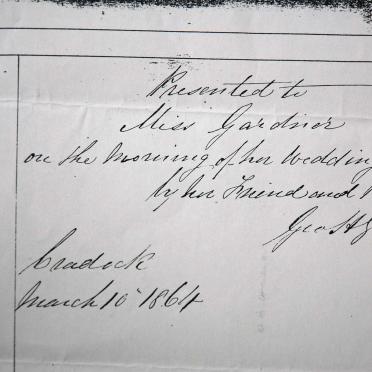 Presented to
Miss Gardner
on the Morning of her Wedding
by her Friend and
Geo H
Cradock
March 10 1864